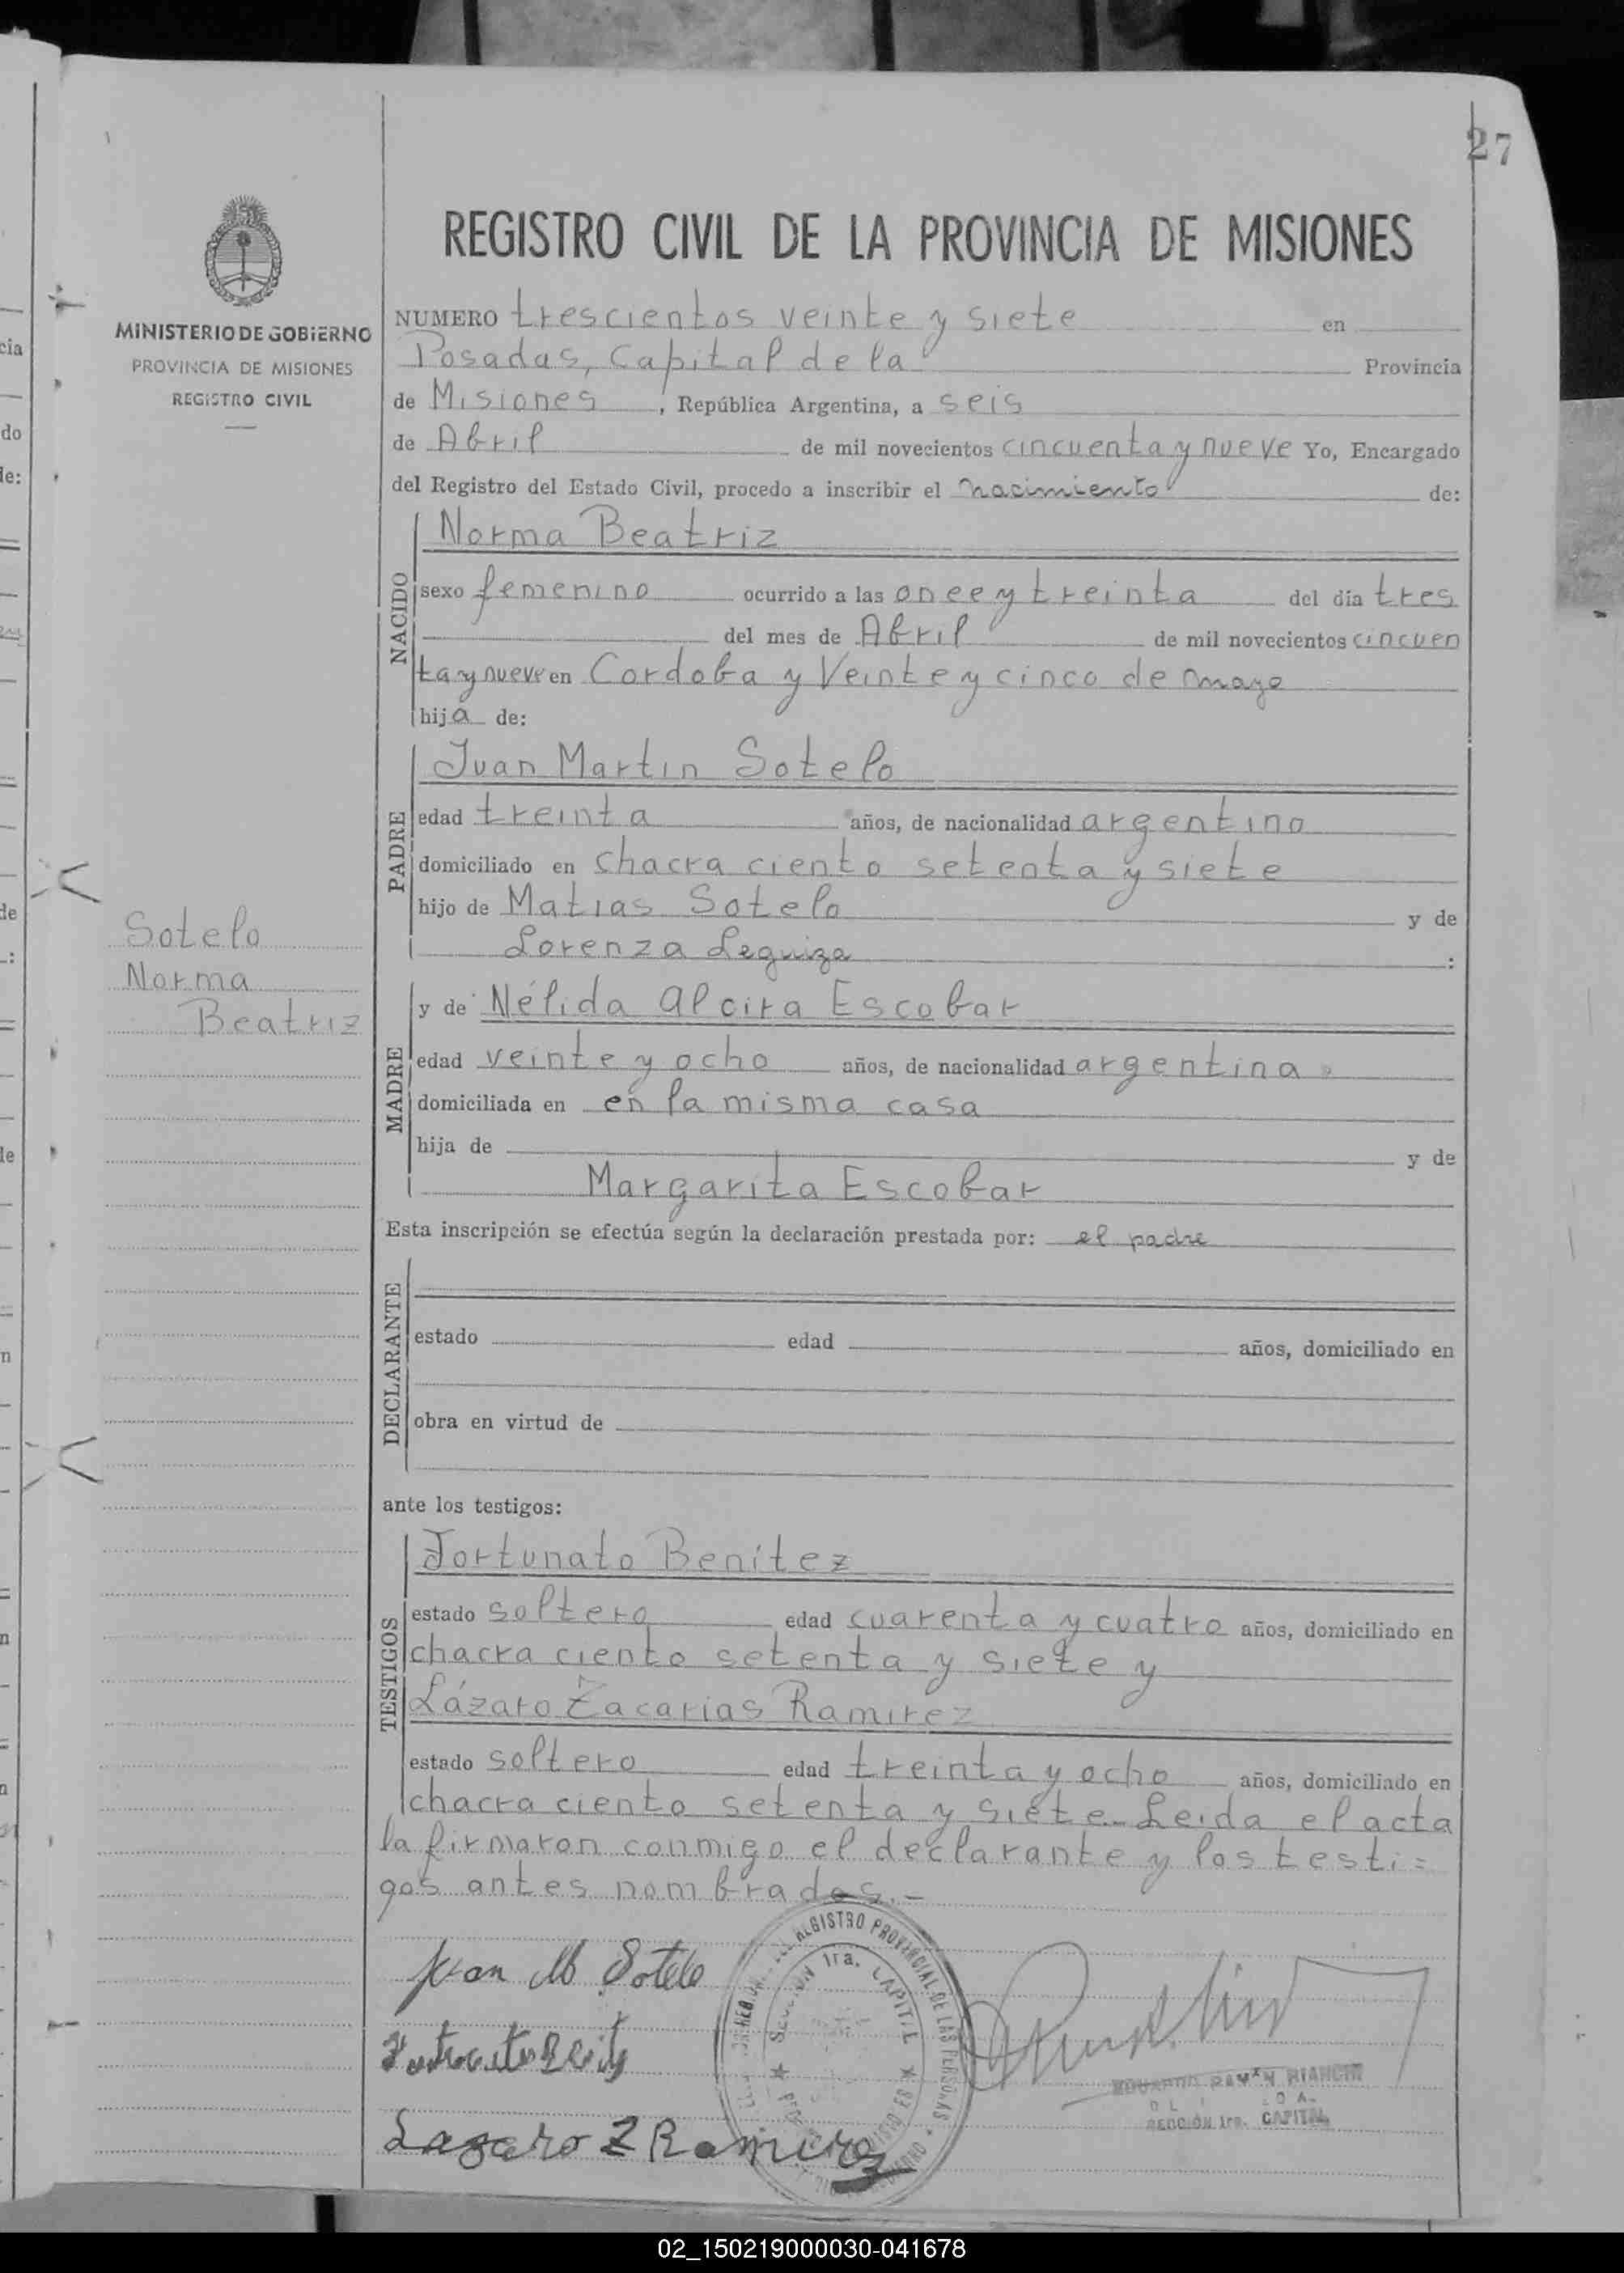 27
REGISTRO CIVIL DE LA PROVINCIA DE MISIONES
MINISTERIO DE GOBIERNO
PROVINCIA DE MISIONES
REGISTRO CIVIL
NUMERO trescientos veinte y siete en
Posadas, Capital de la Provincia
de Misiones, República Argentina, a seis
de Abril de mil novecientos cincuenta y nueve Yo, Encargado
del Registro del Estado Civil, procedo a inscribir el nacimiento de:
NACIDO
Norma Beatriz
sexo femenino ocurrido a las once y treinta del día tres
del mes de Abril de mil novecientos cincuen
ta y nueve en Cordoba y Veinte y cinco de mayo
hija de:
PADRE
Juan Martin Sotelo
edad treinta años, de nacionalidad argentino
domiciliado en chacra ciento setenta y siete
hijo de Matias Sotelo y de
Lorenza Leguiza :
Sotelo
Norma
Beatriz
MADRE
y de Nélida Alcira Escobar
edad veinte y ocho años, de nacionalidad argentina
domiciliada en en la misma casa
hija de y de
Margarita Escobar
Esta inscripción se efectúa según la declaración prestada por: el padre
DECLARANTE
estado edad años, domiciliado en
obra en virtud de
ante los testigos:
TESTIGOS
Fortunato Benítez
estado soltero edad cuarenta y cuatro años, domiciliado en
chacra ciento setenta y siete y
Lázaro Zacarias Ramirez
estado soltero edad treinta y ocho años, domiciliado en
chacra ciento setenta y siete.- Leida el acta
la firmaron conmigo el declarante y los testi=
gos antes nombrados.-
Juan M Sotelo
Lazaro Z Ramirez
REGISTRO PROVINCIAL DE LAS PERSONAS
SECCION 1ra. CAPITAL
EDUARDO RAMON BIANCHI
SECCION 1ra. CAPITAL
02_150219000030-041678